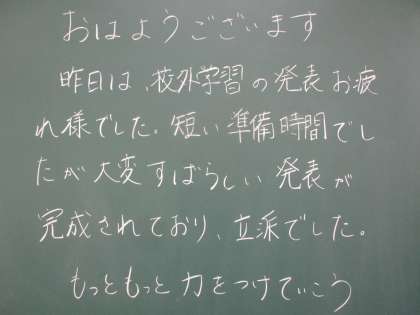 おはようございます
昨日は、校外学習の発表お疲
れ様でした。短い準備時間でし
たが大変すばらしい発表が
完成されており、立派でした。
もっともっと力をつけていこう